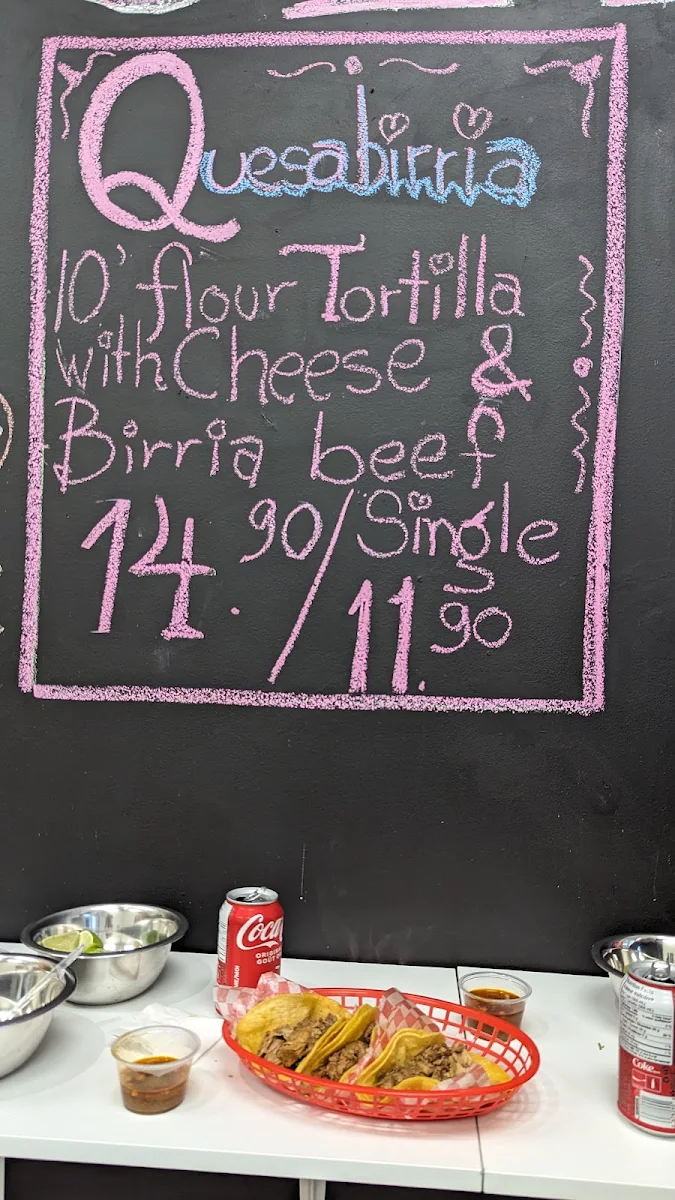 Quesabirria
10' flour Tortilla
with Cheese &
Birria beef
14.90/Single
11.90
Coca
ORIGINAL
GOÛT
Coke